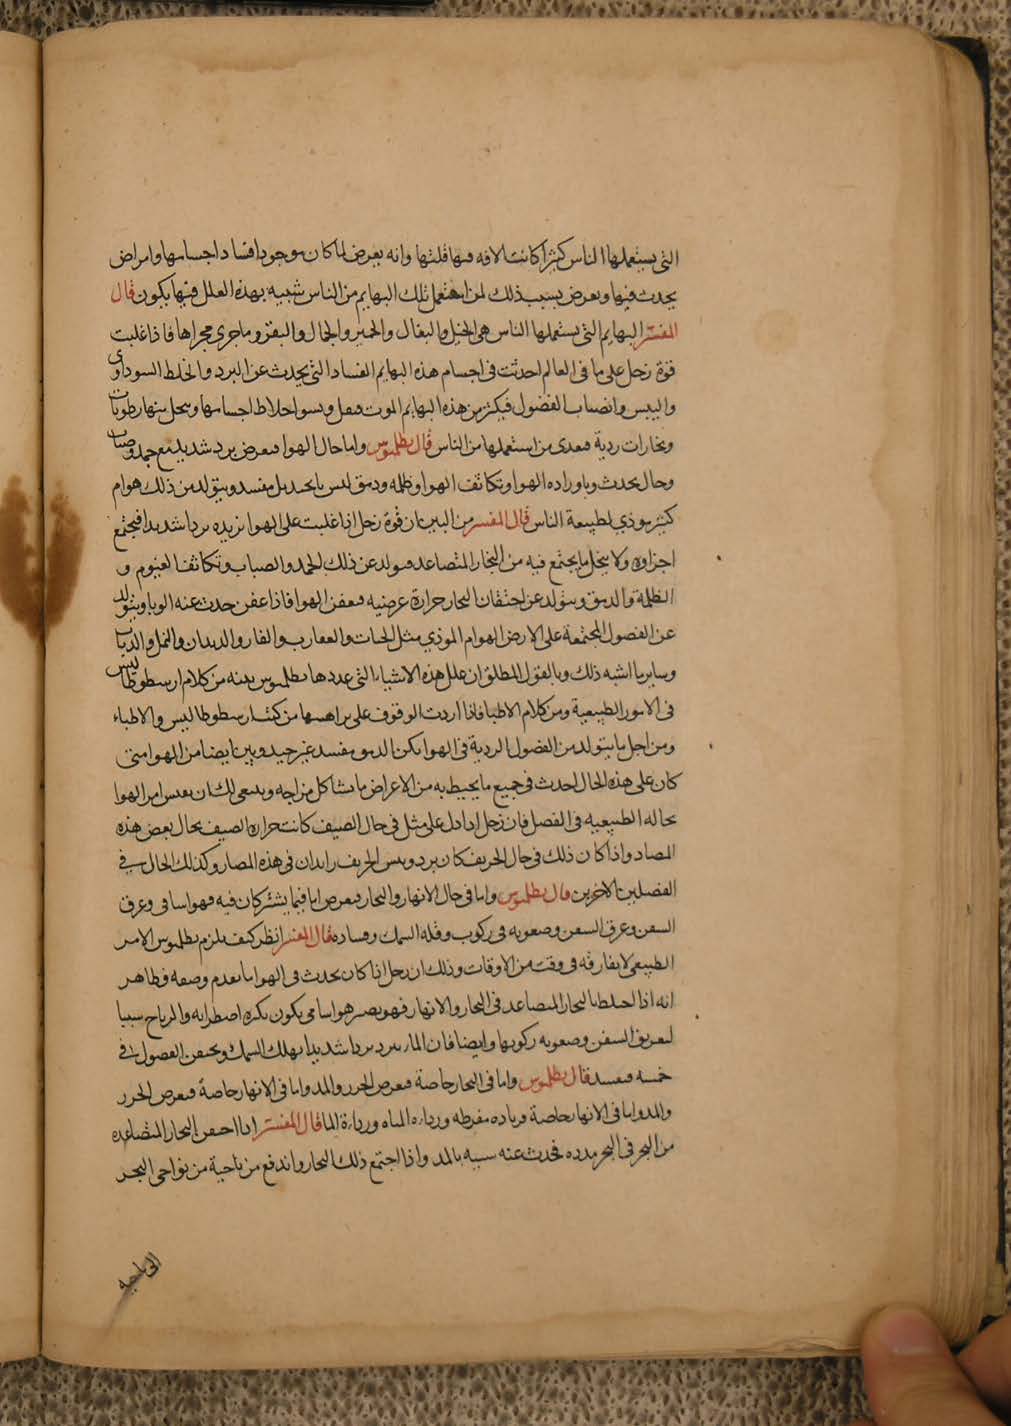 التي يستعملها الناس كثيرا كانت الافه فيها قلتها وانه يعرض لما كان موجودا فساد اجسامها وامراض
يحدث فيها ويعرض بسبب ذلك لمن استعمل تلك البهايم من الناس شبيه بهذه العلل فيها يكون قال
المفسر البهايم التي يستعملها الناس هي الخيل والبغال والحمير والجمال والبقر وما جرى مجراها فاذا غلبت
قوة زحل على ما في العالم احدثت في اجسام هذه البهايم الفساد التي يحدث عن البرد والخلط السوداوي
واليبس وانصباب الفضول فيكثر من هذه البهايم الموت فيقل ويسوا اخلاط اجسامها وينحل منها رطوبات
وبخارات ردية فيعدى من استعملها من الناس قال بطلميوس واما حال الهوا فيعرض برد شديد مع جمد وضباب
وحال يحدث وبا وراده الهوا وتكاثف الهوا وظلمه ودمق ليس بالجيد بل مفسد ويتولد من ذلك هوام
كثير يوذي لطبيعة الناس قال المفسر من البين ان قوة زحل اذا غلبت على الهوا تزيده بردا شديدا فيجتمع
اجزاوه ولا ينحل ما يجتمع فيه من البخار المتصاعد فيتولد عن ذلك الجمد والضباب وتكاثف الغيوم و
الظلمة والدمق ويتولد عن احتقان البخار حرارة عرضيه فيعفن الهوا فاذا عفن حدث عنه الوبا ويتولد
عن الفضول المجتمعة على الارض الهوام الموذي مثل الحيات والعقارب والفار والديدان والنمل والذباب
وساير ما اشبه ذلك وبالقول المطلق ان علل هذه الاشياء التي عددها بطلميوس بينه من كلام ارسطوطاليس
في الامور الطبيعية ومن كلام الاطبا فاذا اردت الوقوف على براهينها من كتب ارسطوطاليس والاطباء
ومن اجل ما يتولد من الفضول الردية في الهوا يكن الدمق مفسد غير جيد وبين ايضا من الهوا متى
كان على هذه الحال احدث في جميع ما يحيط به من الاعراض ما يشاكل مزاجه وينبغي لك ان تقيس امر الهوا
بحاله الطبيعيه في الفصل فان زحل اذا دل على مثل في حال الصيف كانت حراره الصيف بحال بعض هذه
المضاد واذا كان ذلك في حال الخريف كان برد ويبس الخريف زايدان في هذه المضار وكذلك الحال في
الفصلين الاخرين قال بطلميوس واما في حال الانهار والبحار فيعرض اما فيما يشتركان فيه فهوا ساتى وغرق
السفن وغرق السفن وصعوبه في ركوب وقله السمك وفساده قال المفسر انظر كيف يلزم بطلميوس الامر
الطبيعي لا يفارقه في وقت من الاوقات وذلك ان زحل اذا كان يحدث في الهوا ما تقدم وصفه فظاهر
انه اذا اختلط بالبخار المتصاعد في البحار والانهار فهو يصير هوا ساتى يكون بكثره اضطرابه والرياح سببا
لتغريق السفن وصعوبه ركوبها وايضا فان الماء يبرد بردا شديدا يهلك السمك ويحتقن الفضول في
جسمه فيفسد قال بطلميوس واما في البحار خاصة فيعرض الجزر والمد واما في الانهار خاصة فيعرض الجزر
والمد واما في الانهار خاصة فزياده مفرطه ورداءه المياه ورداءة الما قال المفسر اذا احتقن البخار المتصاعده
من البحر في البحر مدده فحدث عنه سببه بالمد واذا اجتمع ذلك البخار واندفع من ناحية من نواحي البحر
الى ناحيه